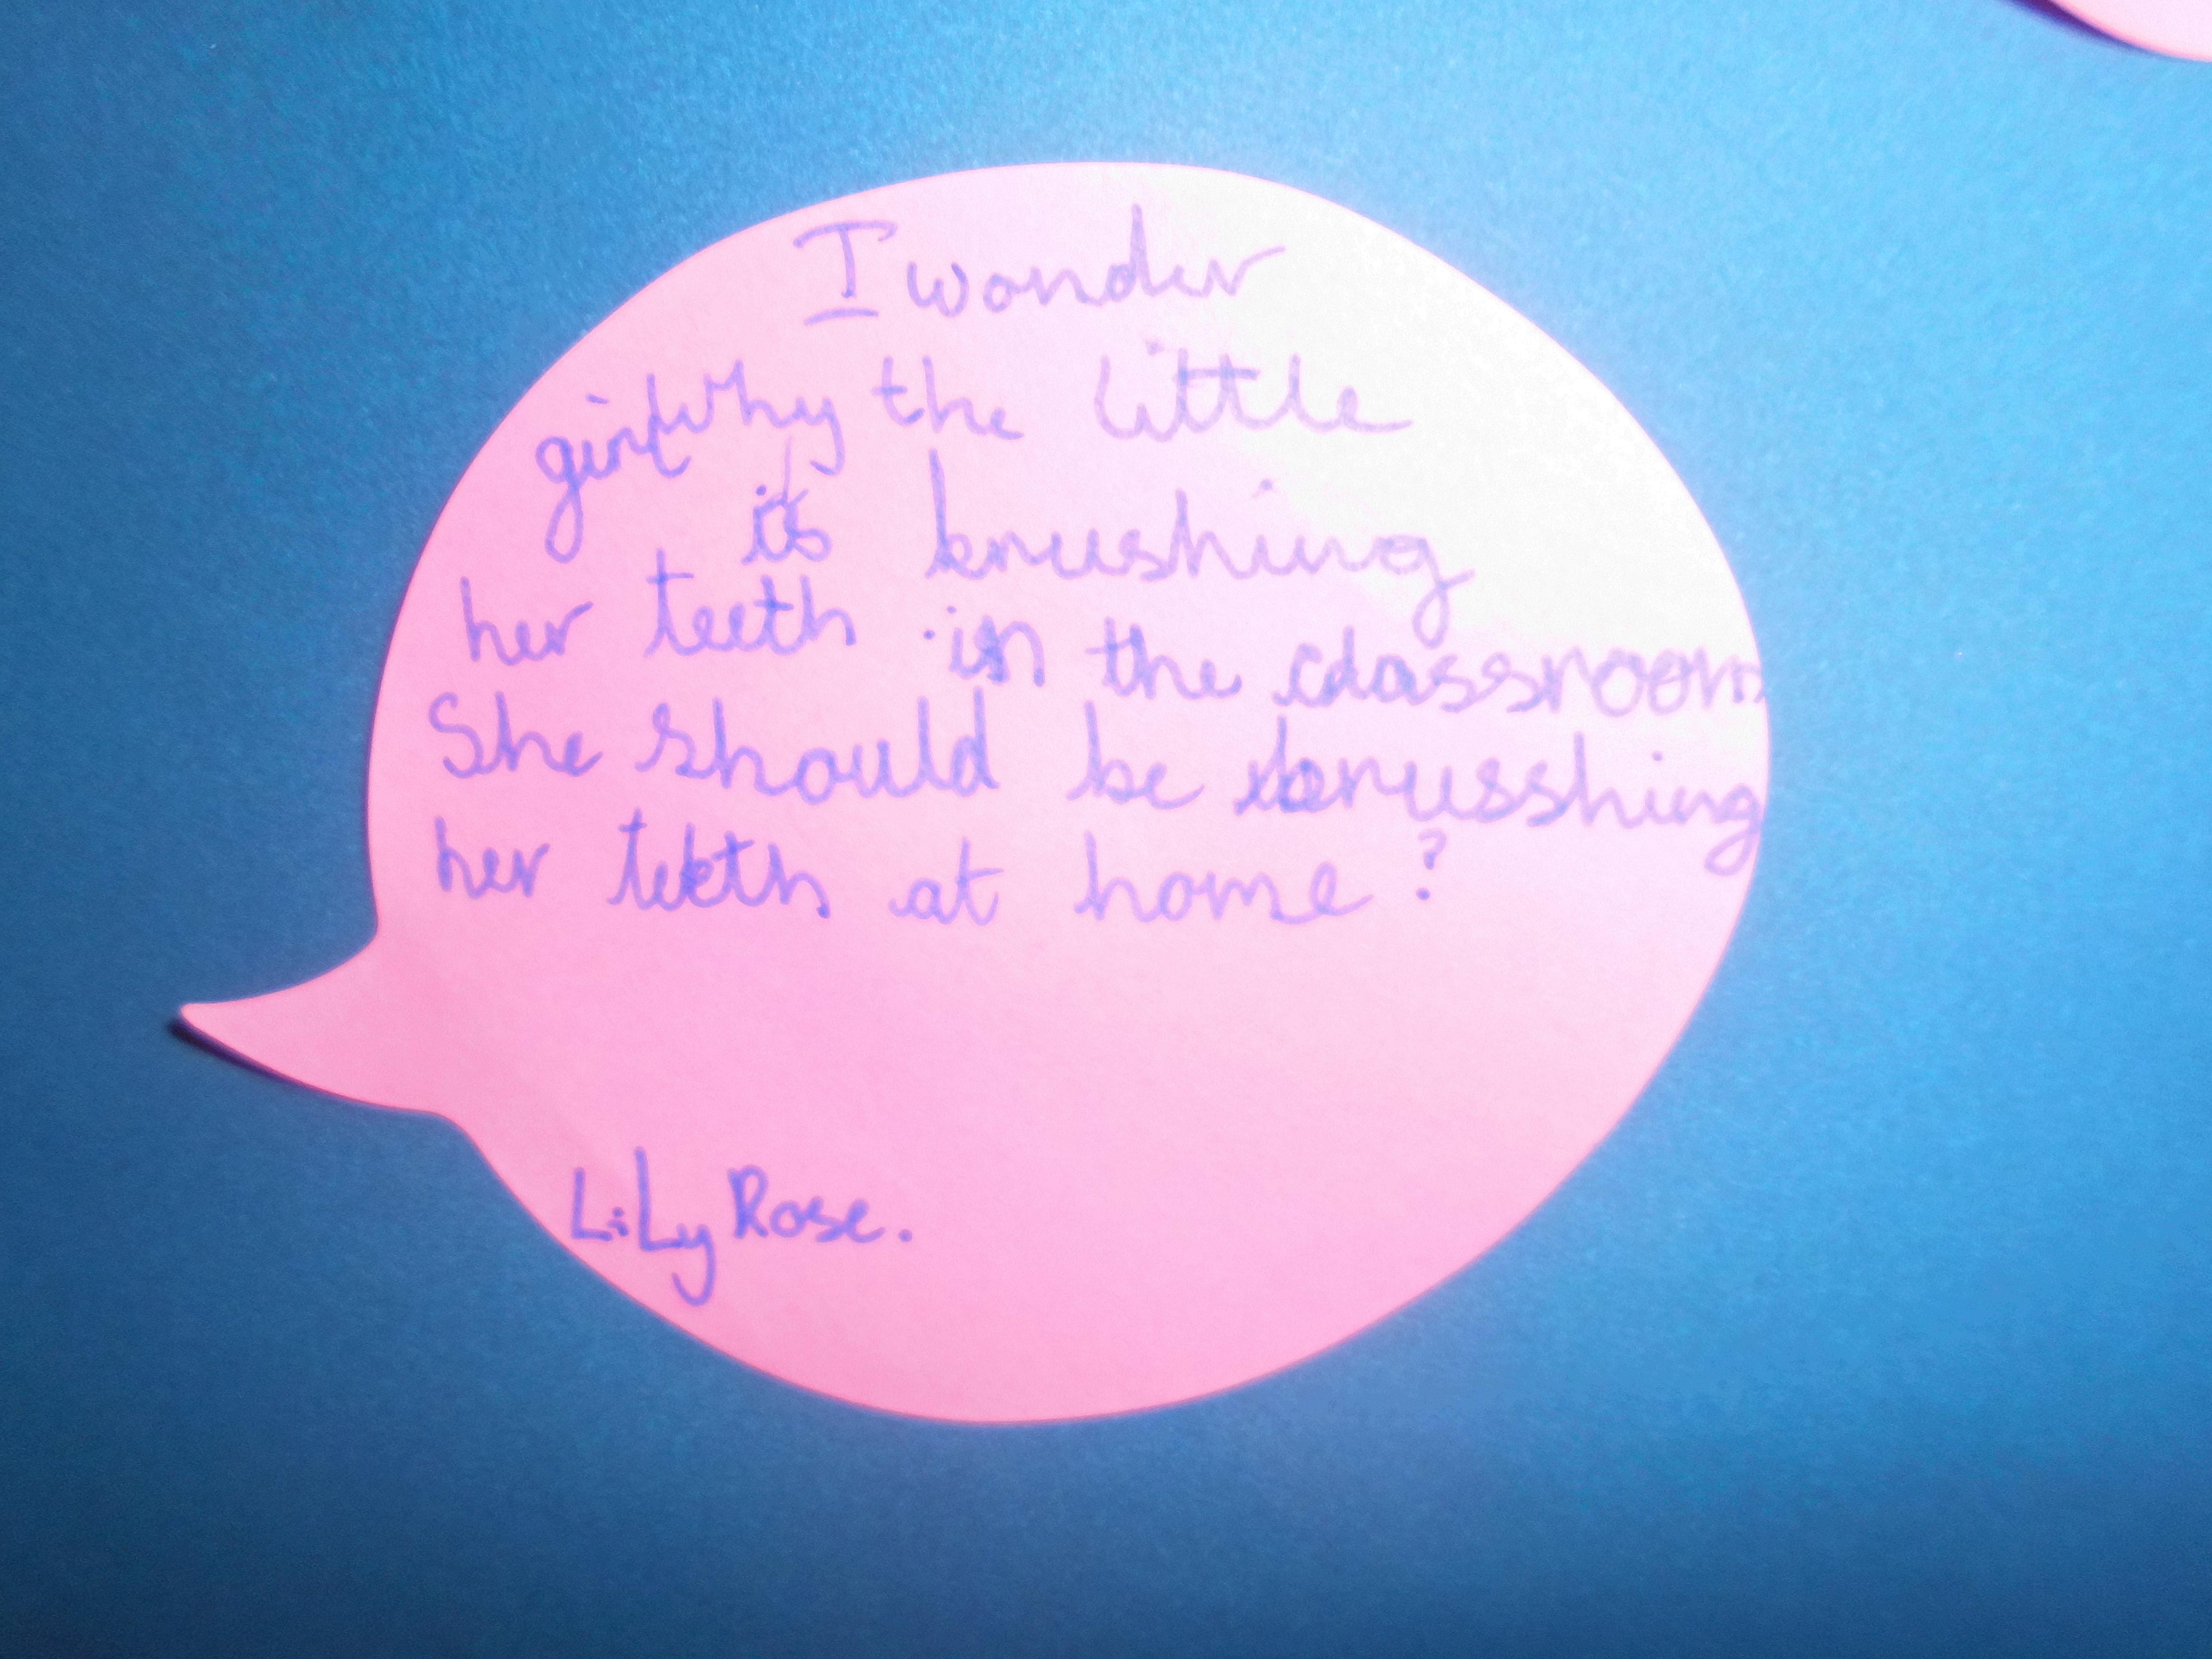 I wonder
girl why the little
is brushing
her teeth in the classroom
She should be brusshing
her teeth at home?
LiLy Rose.